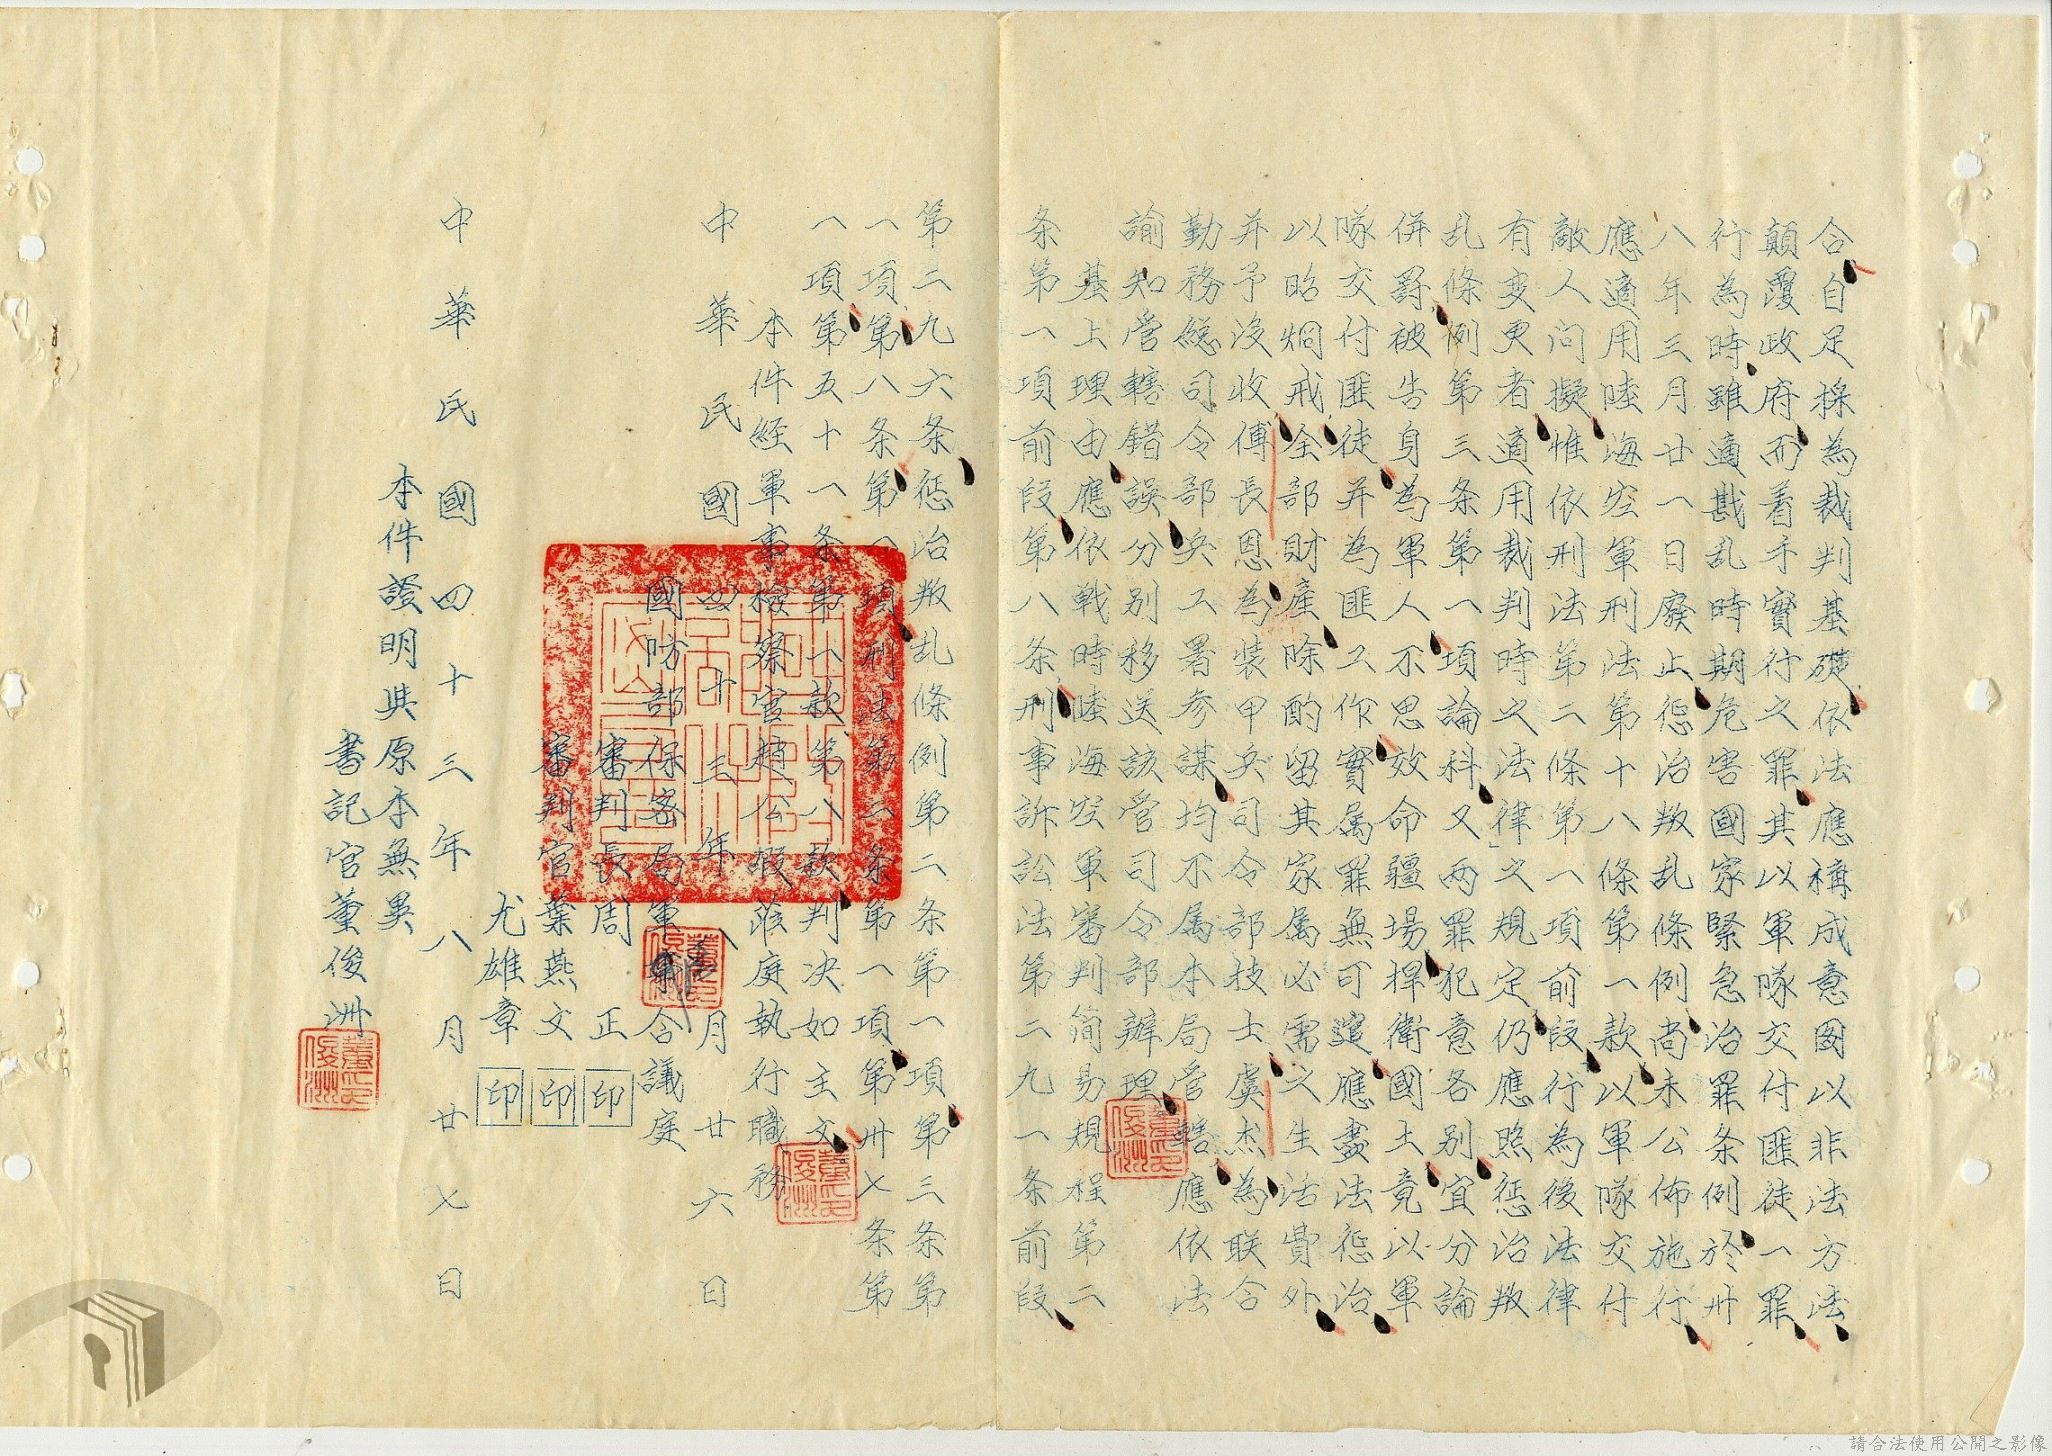 合自足採為裁判基礎依法應構成意圖以非法方法
顛覆政府而着手實行之罪其以軍隊交付匪徒一罪
行為時雖適戡乱時期危害國家緊急治罪条例於卅
八年三月廿一日廢止惩治叛乱條例尚未公佈施行
應適用陸海空軍刑法第十八條第一款以軍隊交付
敵人問擬惟依刑法第二條第一項前段行為後法律
有变更者適用裁判時之法律之規定仍應照惩治叛
乱條例第三条第一項論科又两罪犯意各别宜分論
併罸被告身為軍人不思效命疆場捍衛國土竟以軍
隊交付匪徒并為匪工作實属罪無可逭應盡法惩治
以昭烱戒全部財產除酌留其家属必需之生活費外
并予没收傅長恩為装甲兵司令部技士虞杰為联合
勤務總司令部兵工署參謀均不属本局管轄應依法
諭知管轄錯誤分别移送該管司令部辦理
基上理由應依戰時陸海空軍審判简易規程第二
条第一項前段第八条刑事訴訟法第二九一条前段
第二九六条惩治叛乱條例第二条第一項第三条第
一項第八条第一項刑法第二条第一項第卅七条第
一項第五十一条第一款第八款判决如主文
本件經軍事檢察官趙公嘏蒞庭執行職務
中華民國四十三年八月廿六日
國防部保密局軍事合議庭
審判長周正印
審判官葉燕文印
尤雄章印
中華民國四十三年八月廿七日
本件證明與原本無異
書記官董俊洲
董俊洲印
請合法使用公開之影像